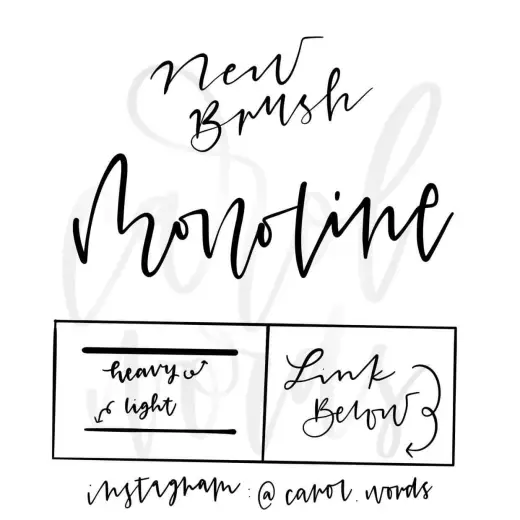 New
Brush
Monoline
heavy
light
Link
Below
instagram: @carol.words
carol
words